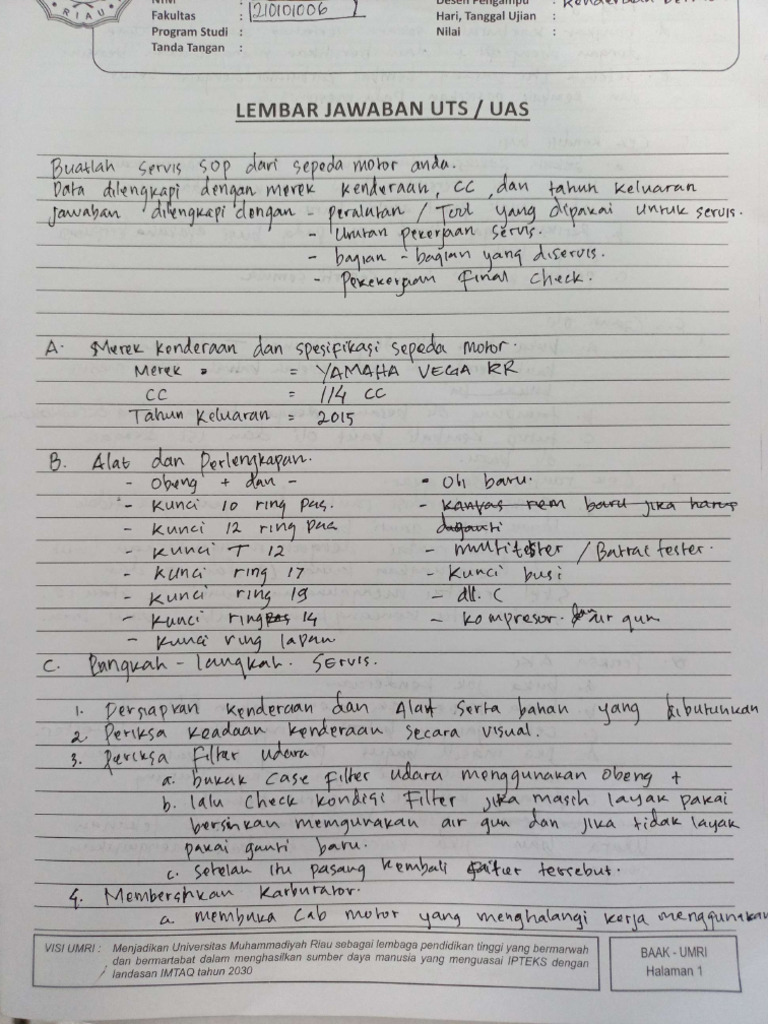 RIAU
Fakultas : 210101006
Program Studi :
Tanda Tangan :
Dosen Pengampu : Kenderaan
Hari, Tanggal Ujian :
Nilai :
LEMBAR JAWABAN UTS / UAS
Buatlah servis SOP dari sepeda motor anda.
Data dilengkapi dengan merek kenderaan, CC, dan tahun keluaran
Jawaban dilengkapi dengan - peralatan / Tool yang dipakai untuk servis.
- Urutan pekerjaan servis.
- bagian - bagian yang diservis.
- Pekekerjaan Final Check.
A. Merek kenderaan dan spesifikasi sepeda motor.
Merek = YAMAHA VEGA RR
CC = 114 CC
Tahun Keluaran = 2015
B. Alat dan Perlengkapan.
- Obeng + dan -
- Kunci 10 ring pas.
- Kunci 12 ring pas
- Kunci T 12
- Kunci ring 17
- Kunci ring 19
- Kunci ring 14
- Kunci ring lapan
- Oli baru.
- kanvas rem baru jika harus
diganti
- multitester / Batrai tester.
- Kunci busi
- dll. C
- kompresor. dan air gun
C. Langkah - langkah. Servis.
1. Persiapkan kenderaan dan Alat serta bahan yang dibutuhkan
2. Periksa keadaan kenderaan secara visual.
3. Periksa Filter udara
a. bukak case Filter udara menggunakan Obeng +
b. lalu check kondisi Filter jika masih layak pakai
bersihkan memgunakan air gun dan jika tidak layak
pakai ganti baru.
c. setelah itu pasang kembali filter tersebut.
4. Membersihkan Karburator.
a. membuka Cab motor yang menghalangi kerja menggunakan
VISI UMRI : Menjadikan Universitas Muhammadiyah Riau sebagai lembaga pendidikan tinggi yang bermarwah
dan bermartabat dalam menghasilkan sumber daya manusia yang menguasai IPTEKS dengan
landasan IMTAQ tahun 2030
BAAK - UMRI
Halaman 1